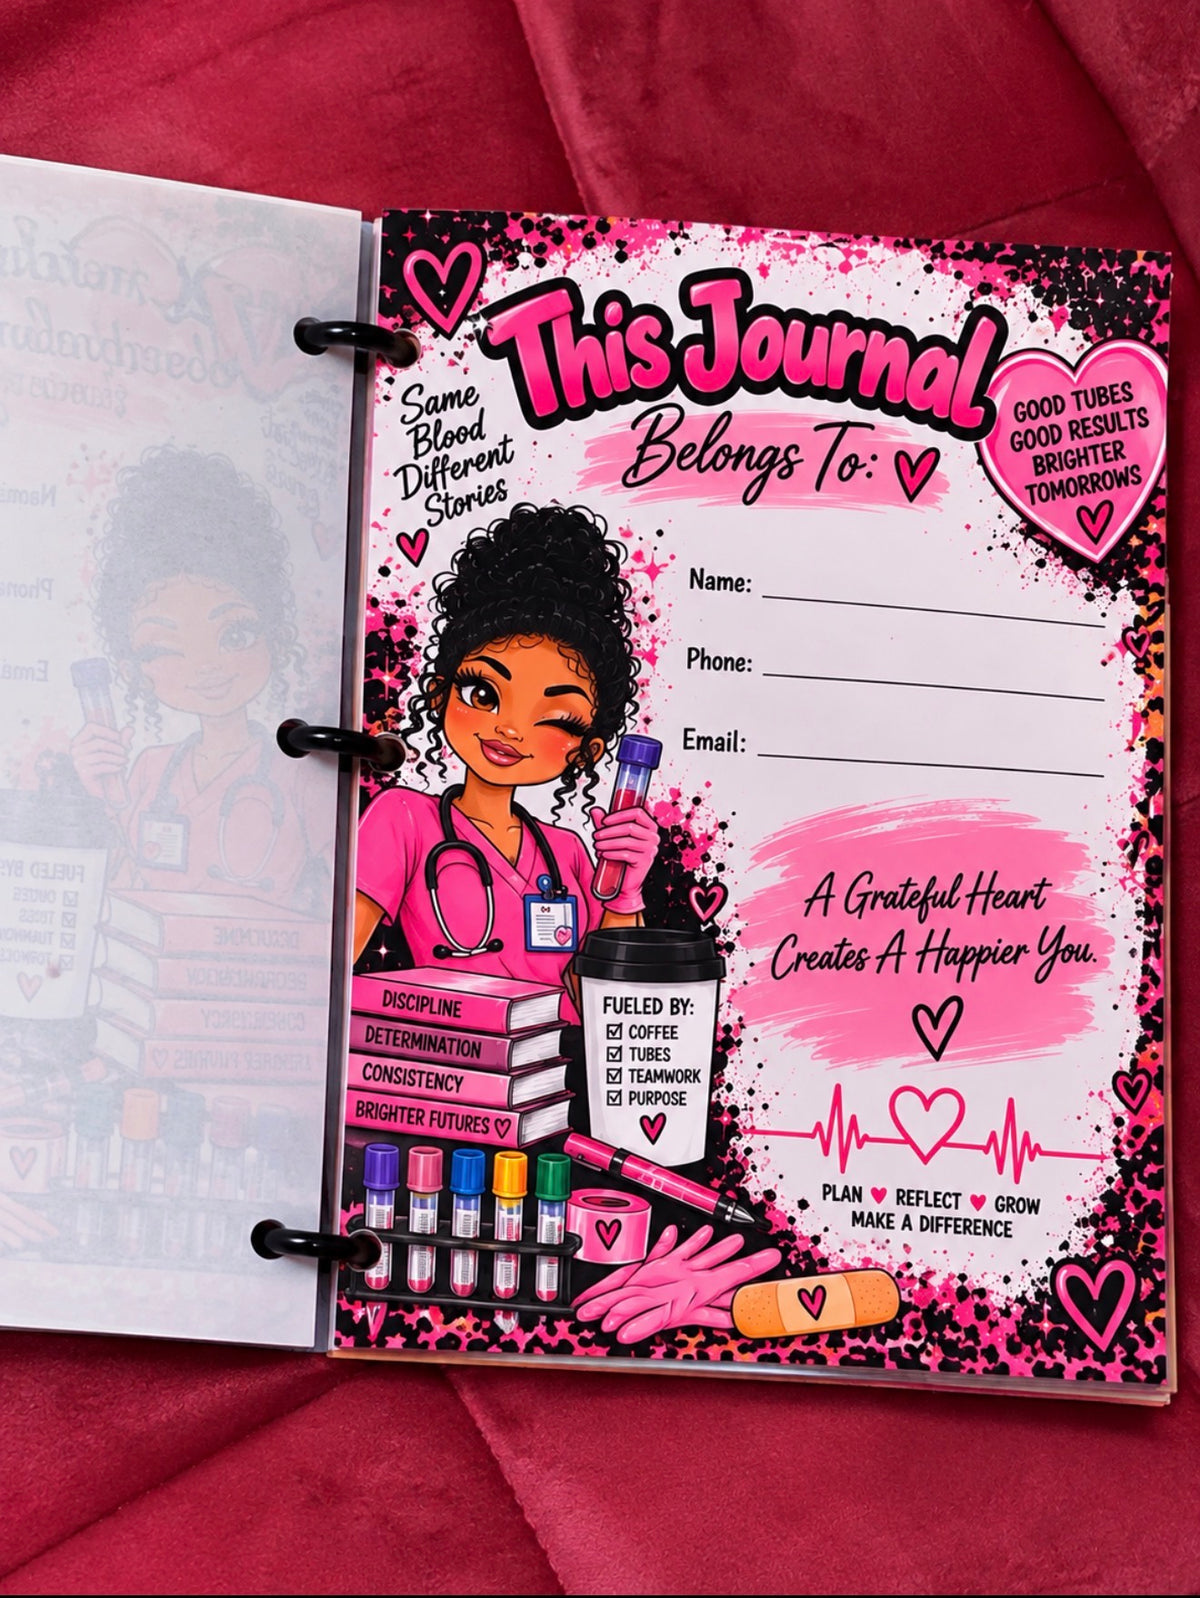 This Journal
Belongs To:
Same
Blood
Different
Stories
GOOD TUBES
GOOD RESULTS
BRIGHTER
TOMORROWS
Name:
Phone:
Email:
A Grateful Heart
Creates A Happier You.
DISCIPLINE
DETERMINATION
CONSISTENCY
BRIGHTER FUTURES
FUELED BY:
COFFEE
TUBES
TEAMWORK
PURPOSE
PLAN REFLECT GROW
MAKE A DIFFERENCE